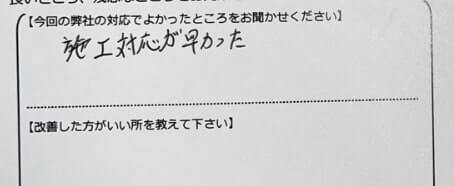 【今回の弊社の対応でよかったところをお聞かせください】
施工対応が早かった
【改善した方がいい所を教えて下さい】